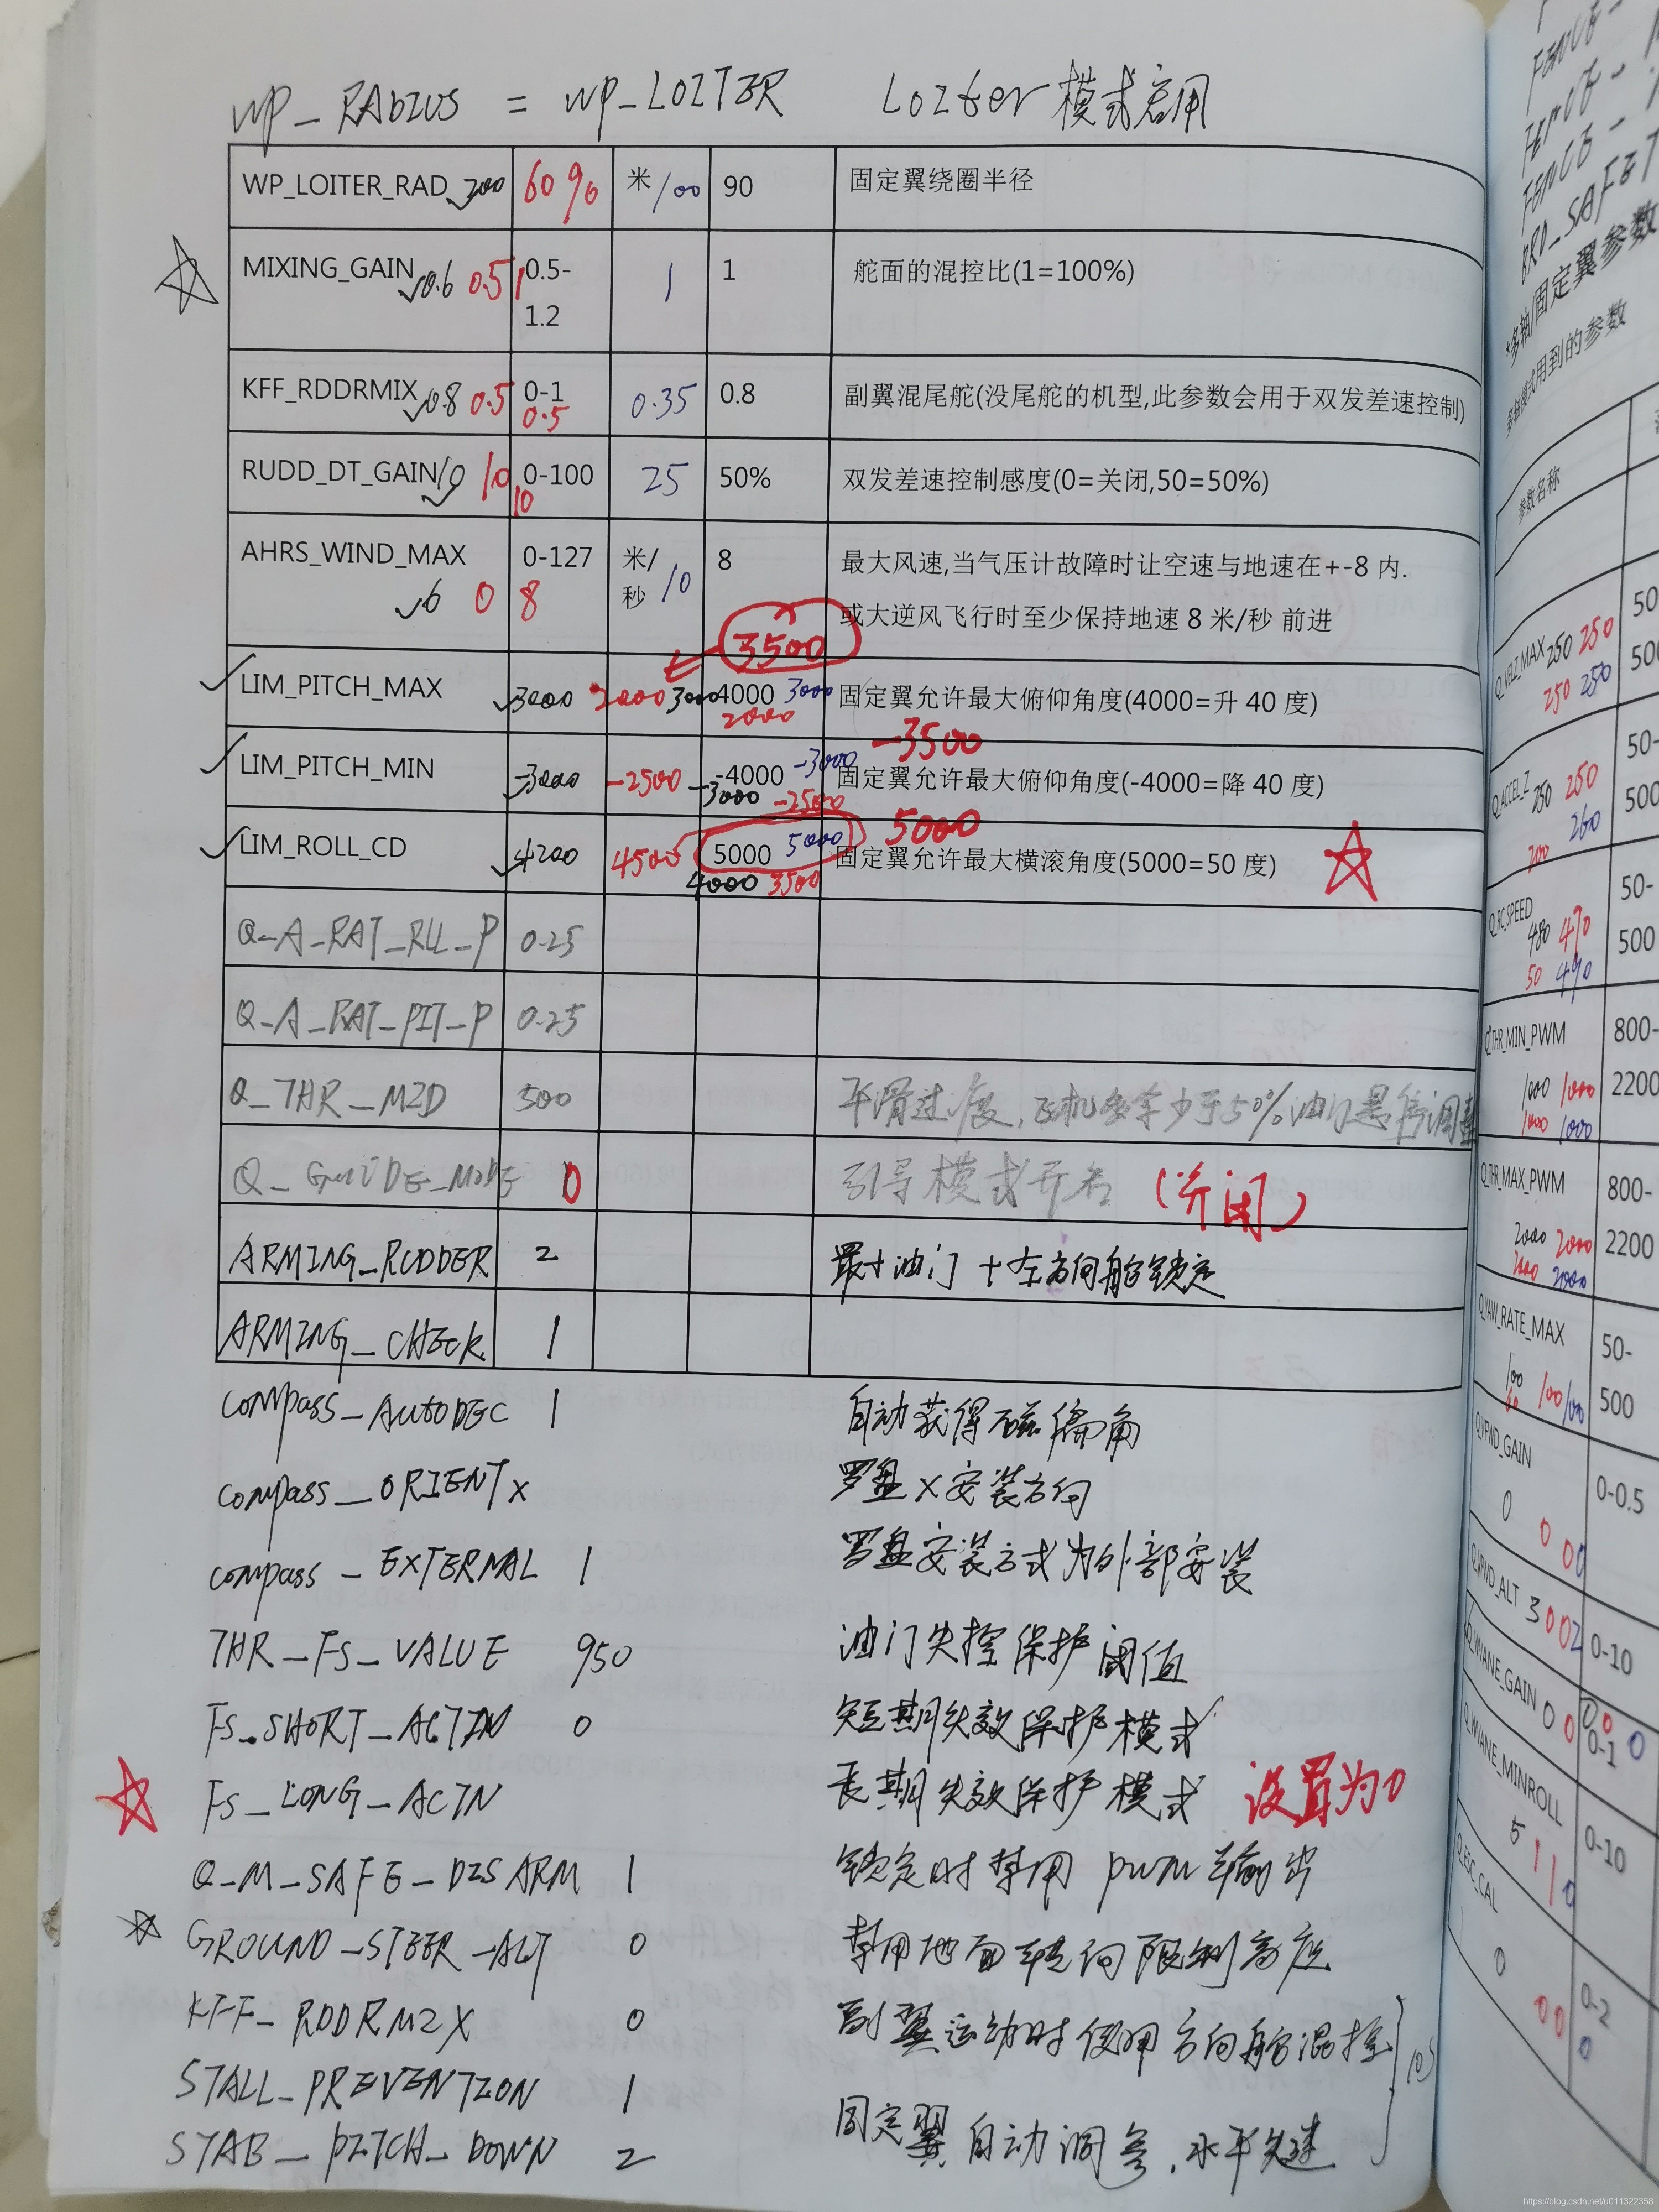 WP_RADIUS = WP_LOITER Loiter 模式启用
WP_LOITER_RAD 200 60% 米/100 90 固定翼绕圈半径
MIXING_GAIN 0.6 0.5 1 0.5- 1 1 舵面的混控比(1=100%)
1.2
KFF_RDDRMIX 0.8 0.5 0-1 0.35 0.8 副翼混尾舵(没尾舵的机型,此参数会用于双发差速控制)
0.5
RUDD_DT_GAIN 10 10 0-100 25 50% 双发差速控制感度(0=关闭,50=50%)
10
AHRS_WIND_MAX 0-127 米/ 8 最大风速,当气压计故障时让空速与地速在+-8 内.
6 0 8 秒 10 或大逆风飞行时至少保持地速 8 米/秒 前进
3500
LIM_PITCH_MAX 3000 2000 3000 4000 3000 固定翼允许最大俯仰角度(4000=升 40 度)
2000
-3500
LIM_PITCH_MIN -3000 -2500 -4000 -3000 固定翼允许最大俯仰角度(-4000=降 40 度)
-3000 -2500
5000
LIM_ROLL_CD 4200 4500 5000 5000 固定翼允许最大横滚角度(5000=50 度)
4000 3500
Q_A_RAT_RLL_P 0.25
Q_A_RAT_PIT_P 0.25
Q_THR_MID 500 平滑过度,飞机 少于50%油门悬停调整
Q_GUIDE_MODE 0 引导模式开启 (关闭)
ARMING_RUDDER 2 最小油门+左方向舵锁定
ARMING_CHECK 1
Compass_AUTODEC 1 自动获得磁偏角
compass_ORIENT X 罗盘X安装方向
compass_EXTERNAL 1 罗盘安装方式为外部安装
THR_FS_VALUE 950 油门失控保护阈值
FS_SHORT_ACTIN 0 短期失效保护模式
FS_LONG_ACTN 长期失效保护模式 设置为0
Q_M_SAFE_DISARM 1 锁定时禁用 pwm 输出
GROUND_STEER_ALT 0 禁用地面转向限制高度
KFF_RDDRMIX 0 副翼运动时使用方向舵混控
STALL_PREVENTION 1
STAB_PITCH_DOWN 2 固定翼自动调参,水平失速
BRD_SAFET
*多轴/固定翼参数
多轴模式用到的参数
参数名称
Q_VELZ_MAX 250 250 50-
250 250 500
Q_ACCEL_Z 250 250 50-
200 260 500
Q_RC_SPEED 50-
480 470 500
50 490
Q_THR_MIN_PWM 800-
1000 1000 2200
1000 1000
Q_THR_MAX_PWM 800-
2000 2000 2200
2000 2000
Q_YAW_RATE_MAX 50-
100 100 100 500
60
Q_VFWD_GAIN 0-0.5
0 0 00
Q_VFWD_ALT 3 0 0 2 0-10
Q_WVANE_GAIN 0 0 0 0 0-1 0
Q_WVANE_MINROLL 0-10
5 1 1 0
Q_ESC_CAL 0-2
0 0 0 0
https://blog.csdn.net/u011322358